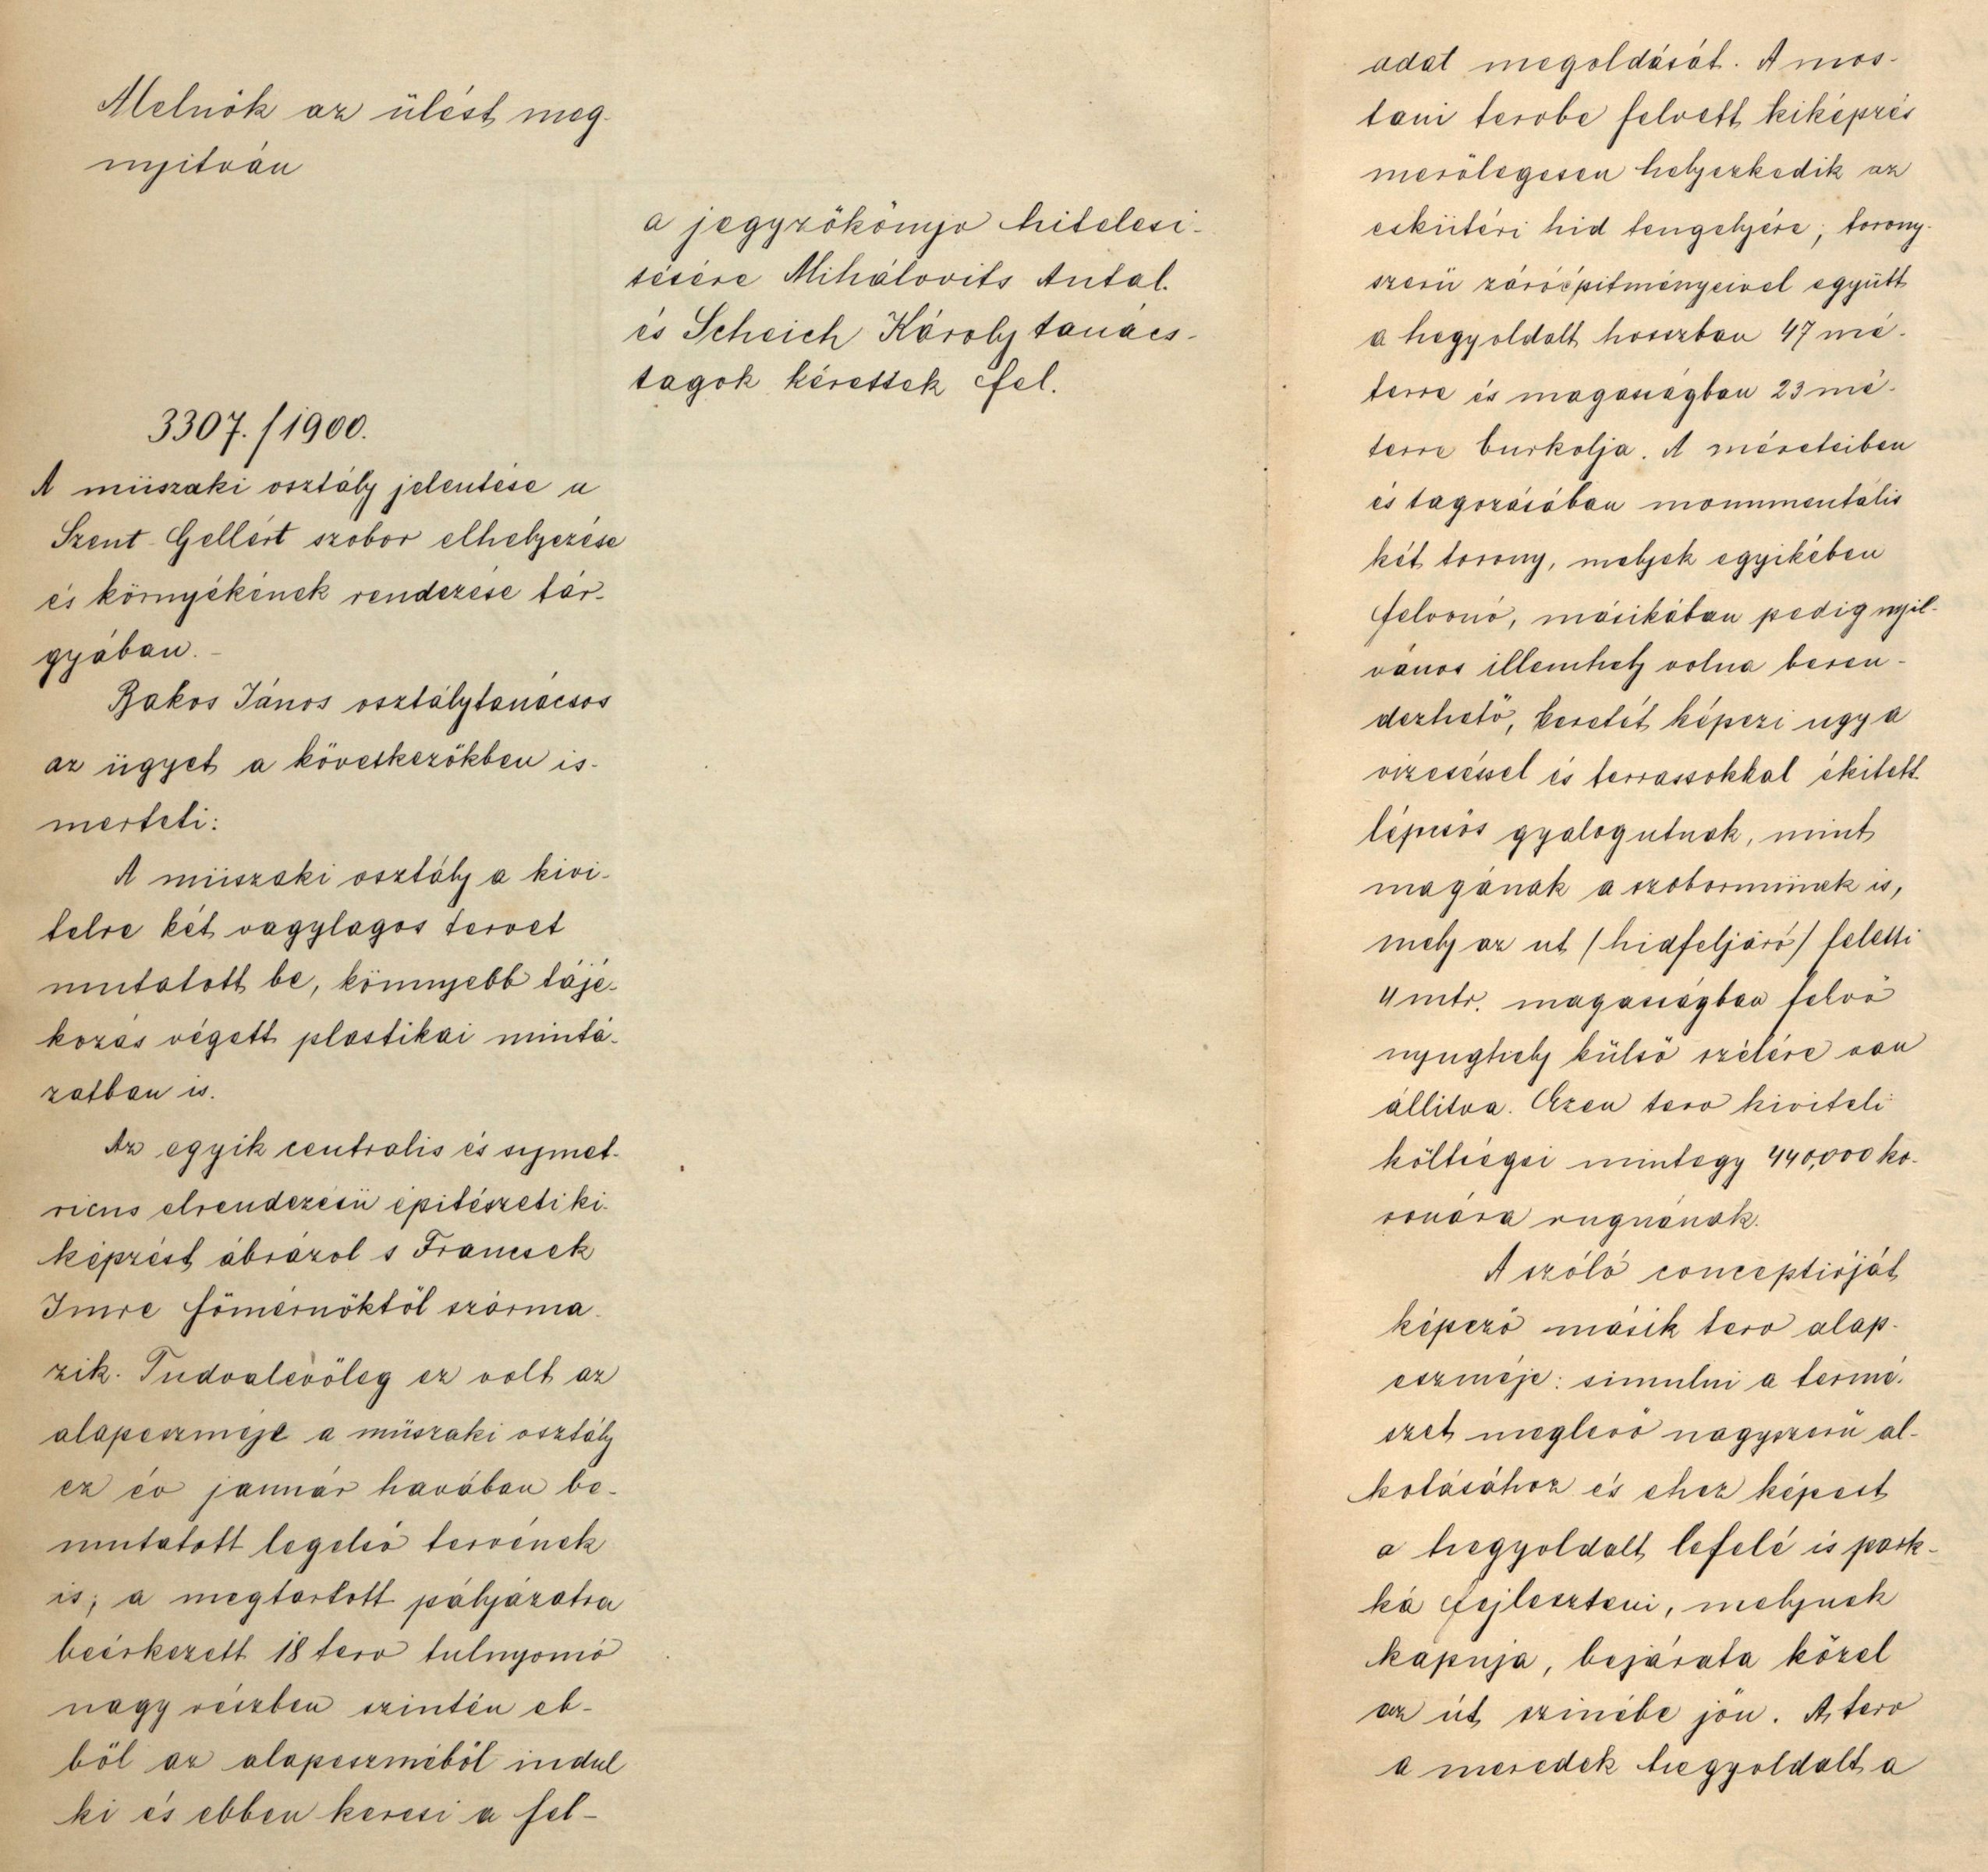 Alelnök az ülést meg-
nyitván
a jegyzőkönyv hitelesi-
tésére Mihálovits Antal
és Scheich Károly tanács-
tagok kérettek fel.
3307./1900.
A müszaki osztály jelentése a
Szent-Gellért szobor elhelyezése
és környékének rendezése tár-
gyában.-
Bakos János osztálytanácsos
az ügyet a következőkben is-
merteti:
A müszaki osztály a kivi-
telre két vagylagos tervet
mutatott be, könnyebb tájé-
kozás végett plastikai mintá-
zatban is.
Az egyik centralis és symet-
ricus elrendezésü épitészeti ki-
képzést ábrázol s Francsek
Imre főmérnöktől szárma-
zik. Tudvalevőleg ez volt az
alapeszméje a müszaki osztály
ez év január havában be-
mutatott legelső tervének
is; a megtartott pályázatra
beérkezett 18 terv tulnyomó
nagy részben szintén eb-
ből az alapeszméből indul
ki és ebben keresi a fel-
adat megoldását. A mos-
tani tervbe felvett kiképzés
merőlegesen helyezkedik az
eskütéri hid tengelyére, torony-
szerü záróépitményeivel együtt
a hegyoldalt hoszban 47 mé-
terre és magasságban 23 mé-
terre burkolja. A méreteiben
és tagozásában monumentális
két torony, melyek egyikében
felvonó, másikában pedig nyil-
vános illemhely volna beren-
dezhető, keretét képezi ugy a
vizeséssel és terrassokkal ékitett
lépcsős gyalogutnak, mint
magának a szobormünek is,
mely az ut /hidfeljáró/ feletti
4 mtr. magasságban felvő
nyughely külső szélére van
állitva. Ezen terv kiviteli
költségei mintegy 440,000 ko-
ronára rugnának.
A szóló conceptióját
képező másik terv alap-
eszméje: simulni a termé-
szet meglevő nagyszerü al-
kotásához és ehez képest
a hegyoldalt lefelé is park-
ká fejleszteni, melynek
kapuja, bejárata közel
az út szinébe jön. A terv
a meredek hegyoldalt a